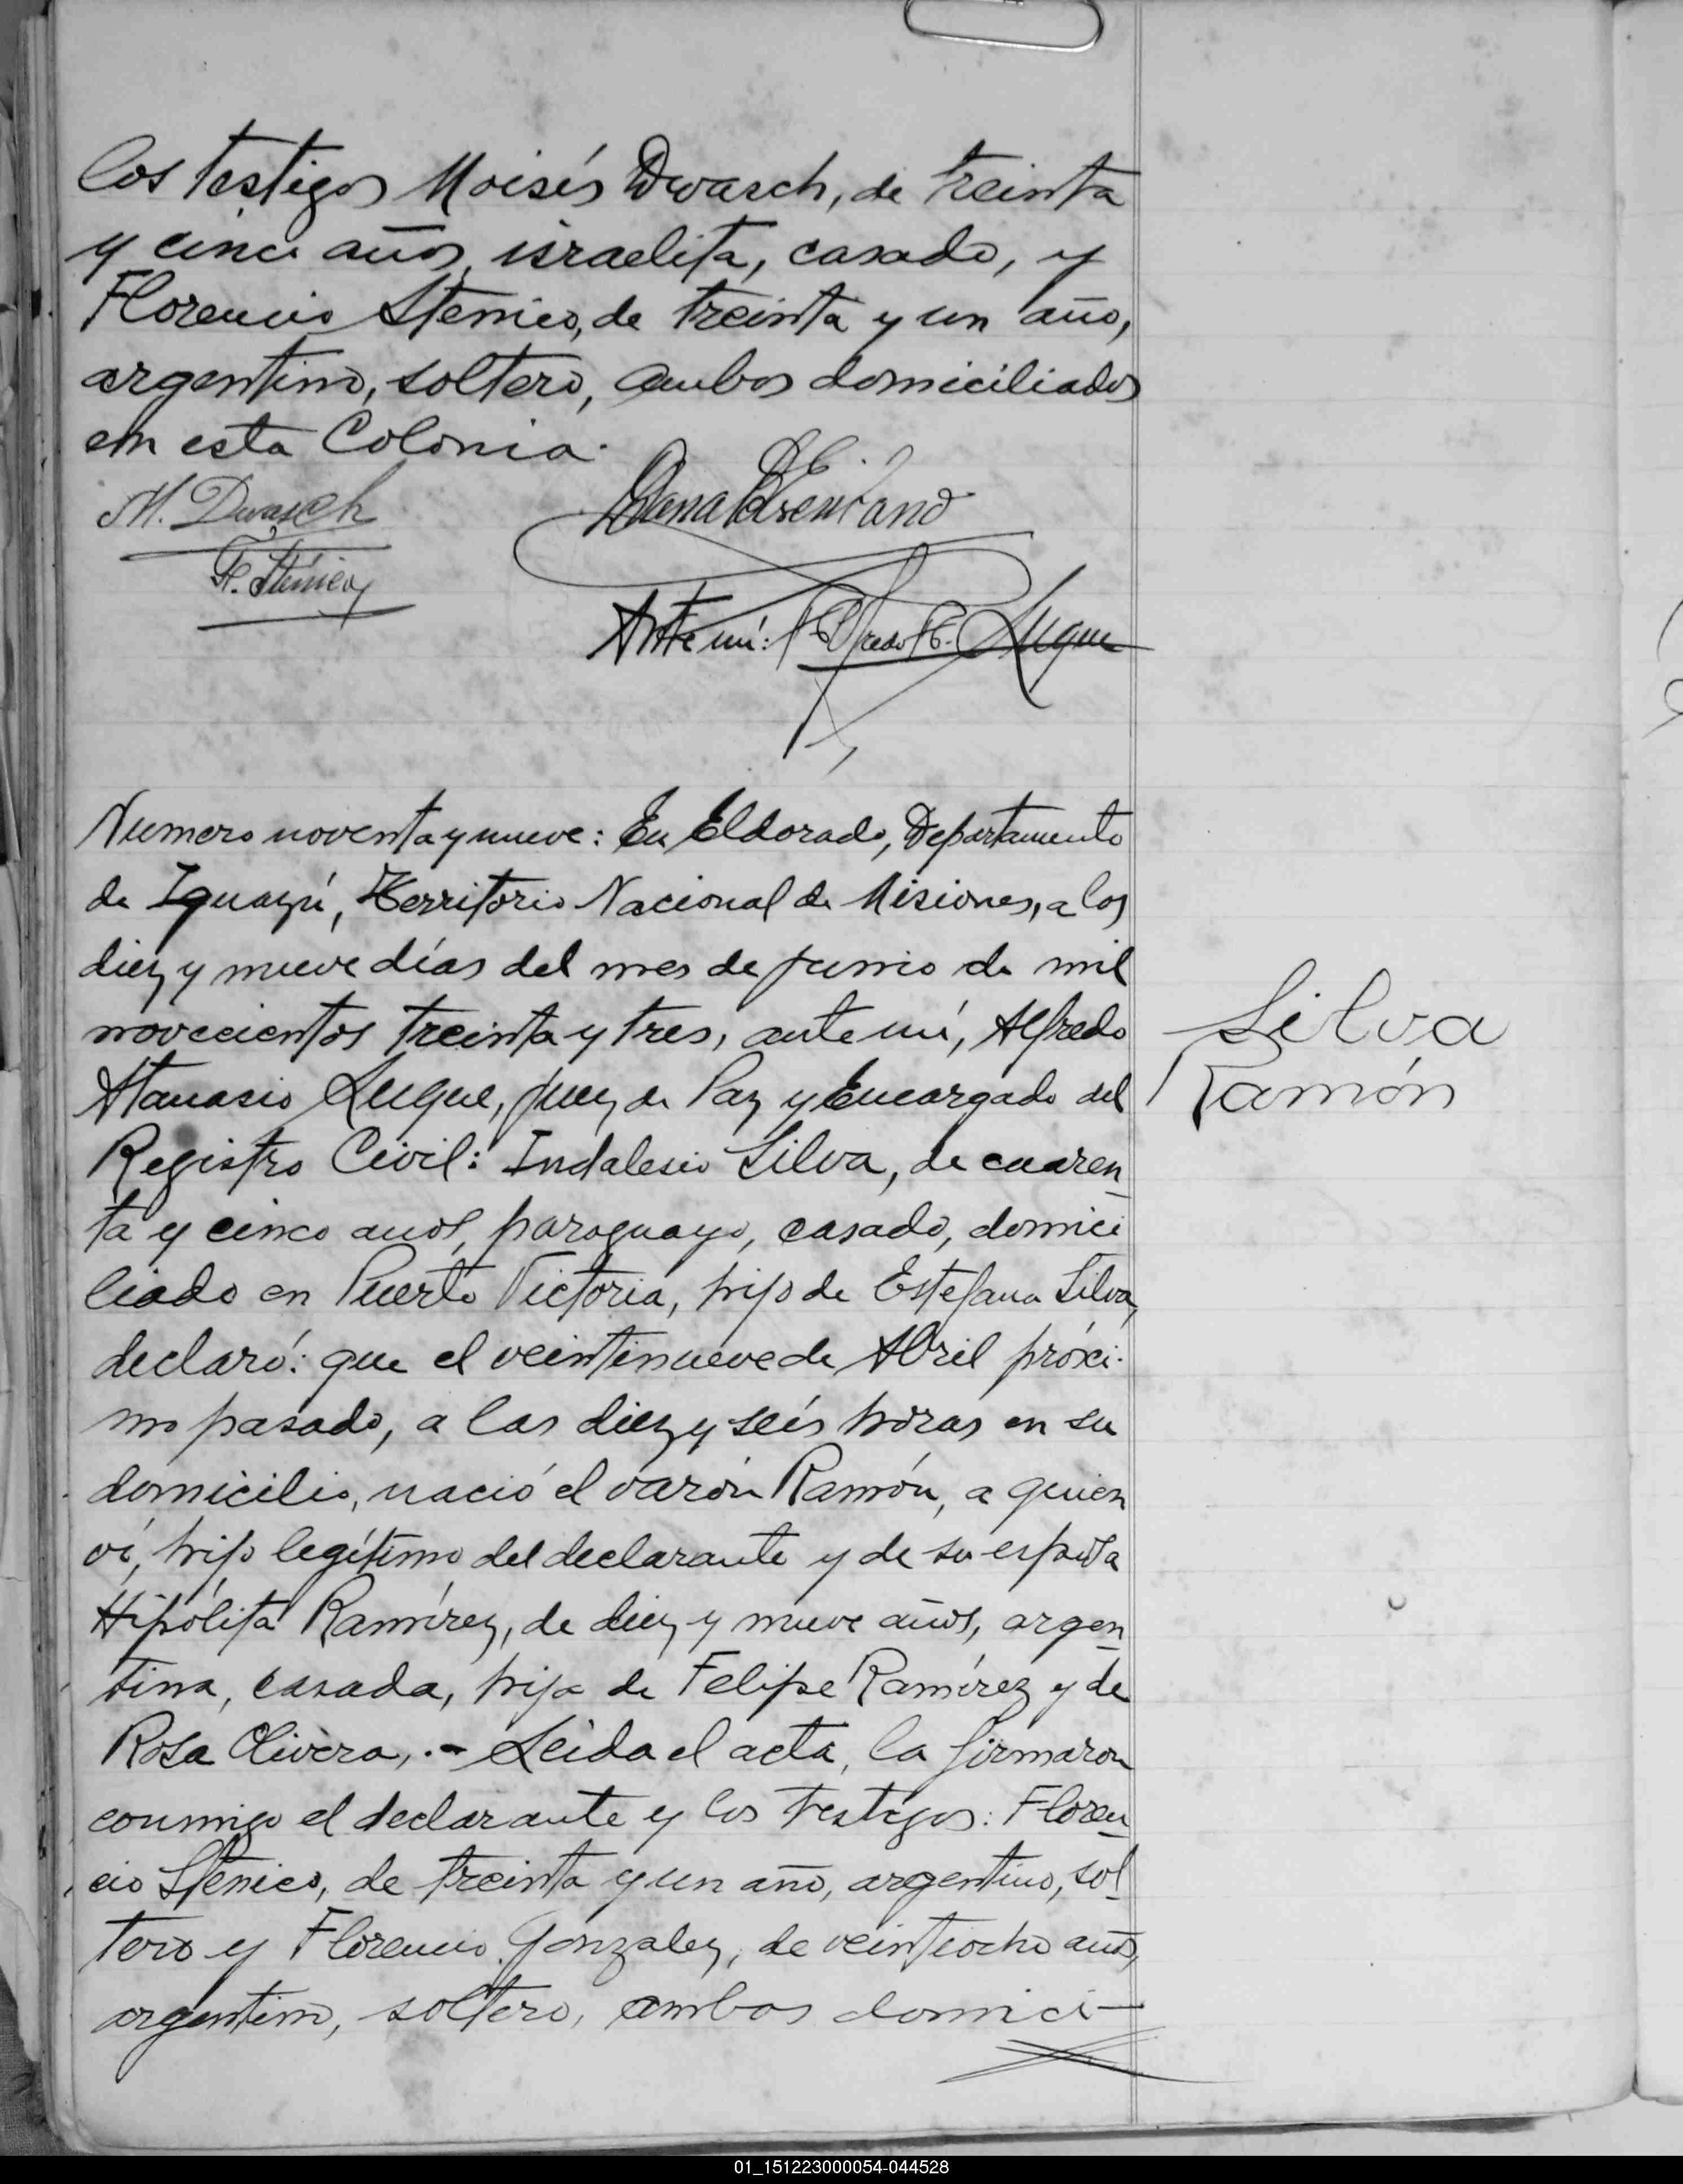 los testigos Moisés Dwasch, de treinta
y cinco años, israelita, casado, y
Florencio Stenico, de treinta y un año,
argentino, soltero, ambos domiciliados
en esta Colonia.
M. Dwasch
F. Stenico
Ante mí: Alfredo A. Luque
Numero noventa y nueve: En Eldorado, Departamento
de Iguazú, Territorio Nacional de Misiones, a los
diez y nueve días del mes de junio de mil
novecientos treinta y tres, ante mí, Alfredo
Atanasio Luque, Juez de Paz y Encargado del
Registro Civil: Indalesio Silva, de cuaren
ta y cinco años, paraguayo, casado, domici
liado en Puerto Victoria, hijo de Estefana Silva,
declaró: que el veintinueve de Abril próxi-
mo pasado, a las diez y seis horas en su
domicilio, nació el varón Ramón, a quien
ví, hijo legítimo del declarante y de su esposa
Hipólita Ramírez, de diez y nueve años, argen
tina, casada, hija de Felipe Ramírez y de
Rosa Olivera,.- Leida el acta, la firmaron
conmigo el declarante y los testigos: Floren
cio Stenico, de treinta y un año, argentino, sol
tero y Florencio Gonzalez, de veintiocho años,
argentino, soltero, ambos domici-
Silva
Ramón
01_151223000054-044528